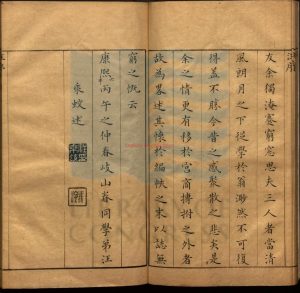 友余獨淹蹇窮窓思夫三人者當清
風朗月之下從學於翁渺然不可復
得蓋不勝今昔之感聚散之悲矣是
余之情更有移於宮商摶拊之外者
故為略述其懷於編帙之末以誌無
窮之慨云
康熙丙午之仲春岐山眷同學弟汪
來蛟述